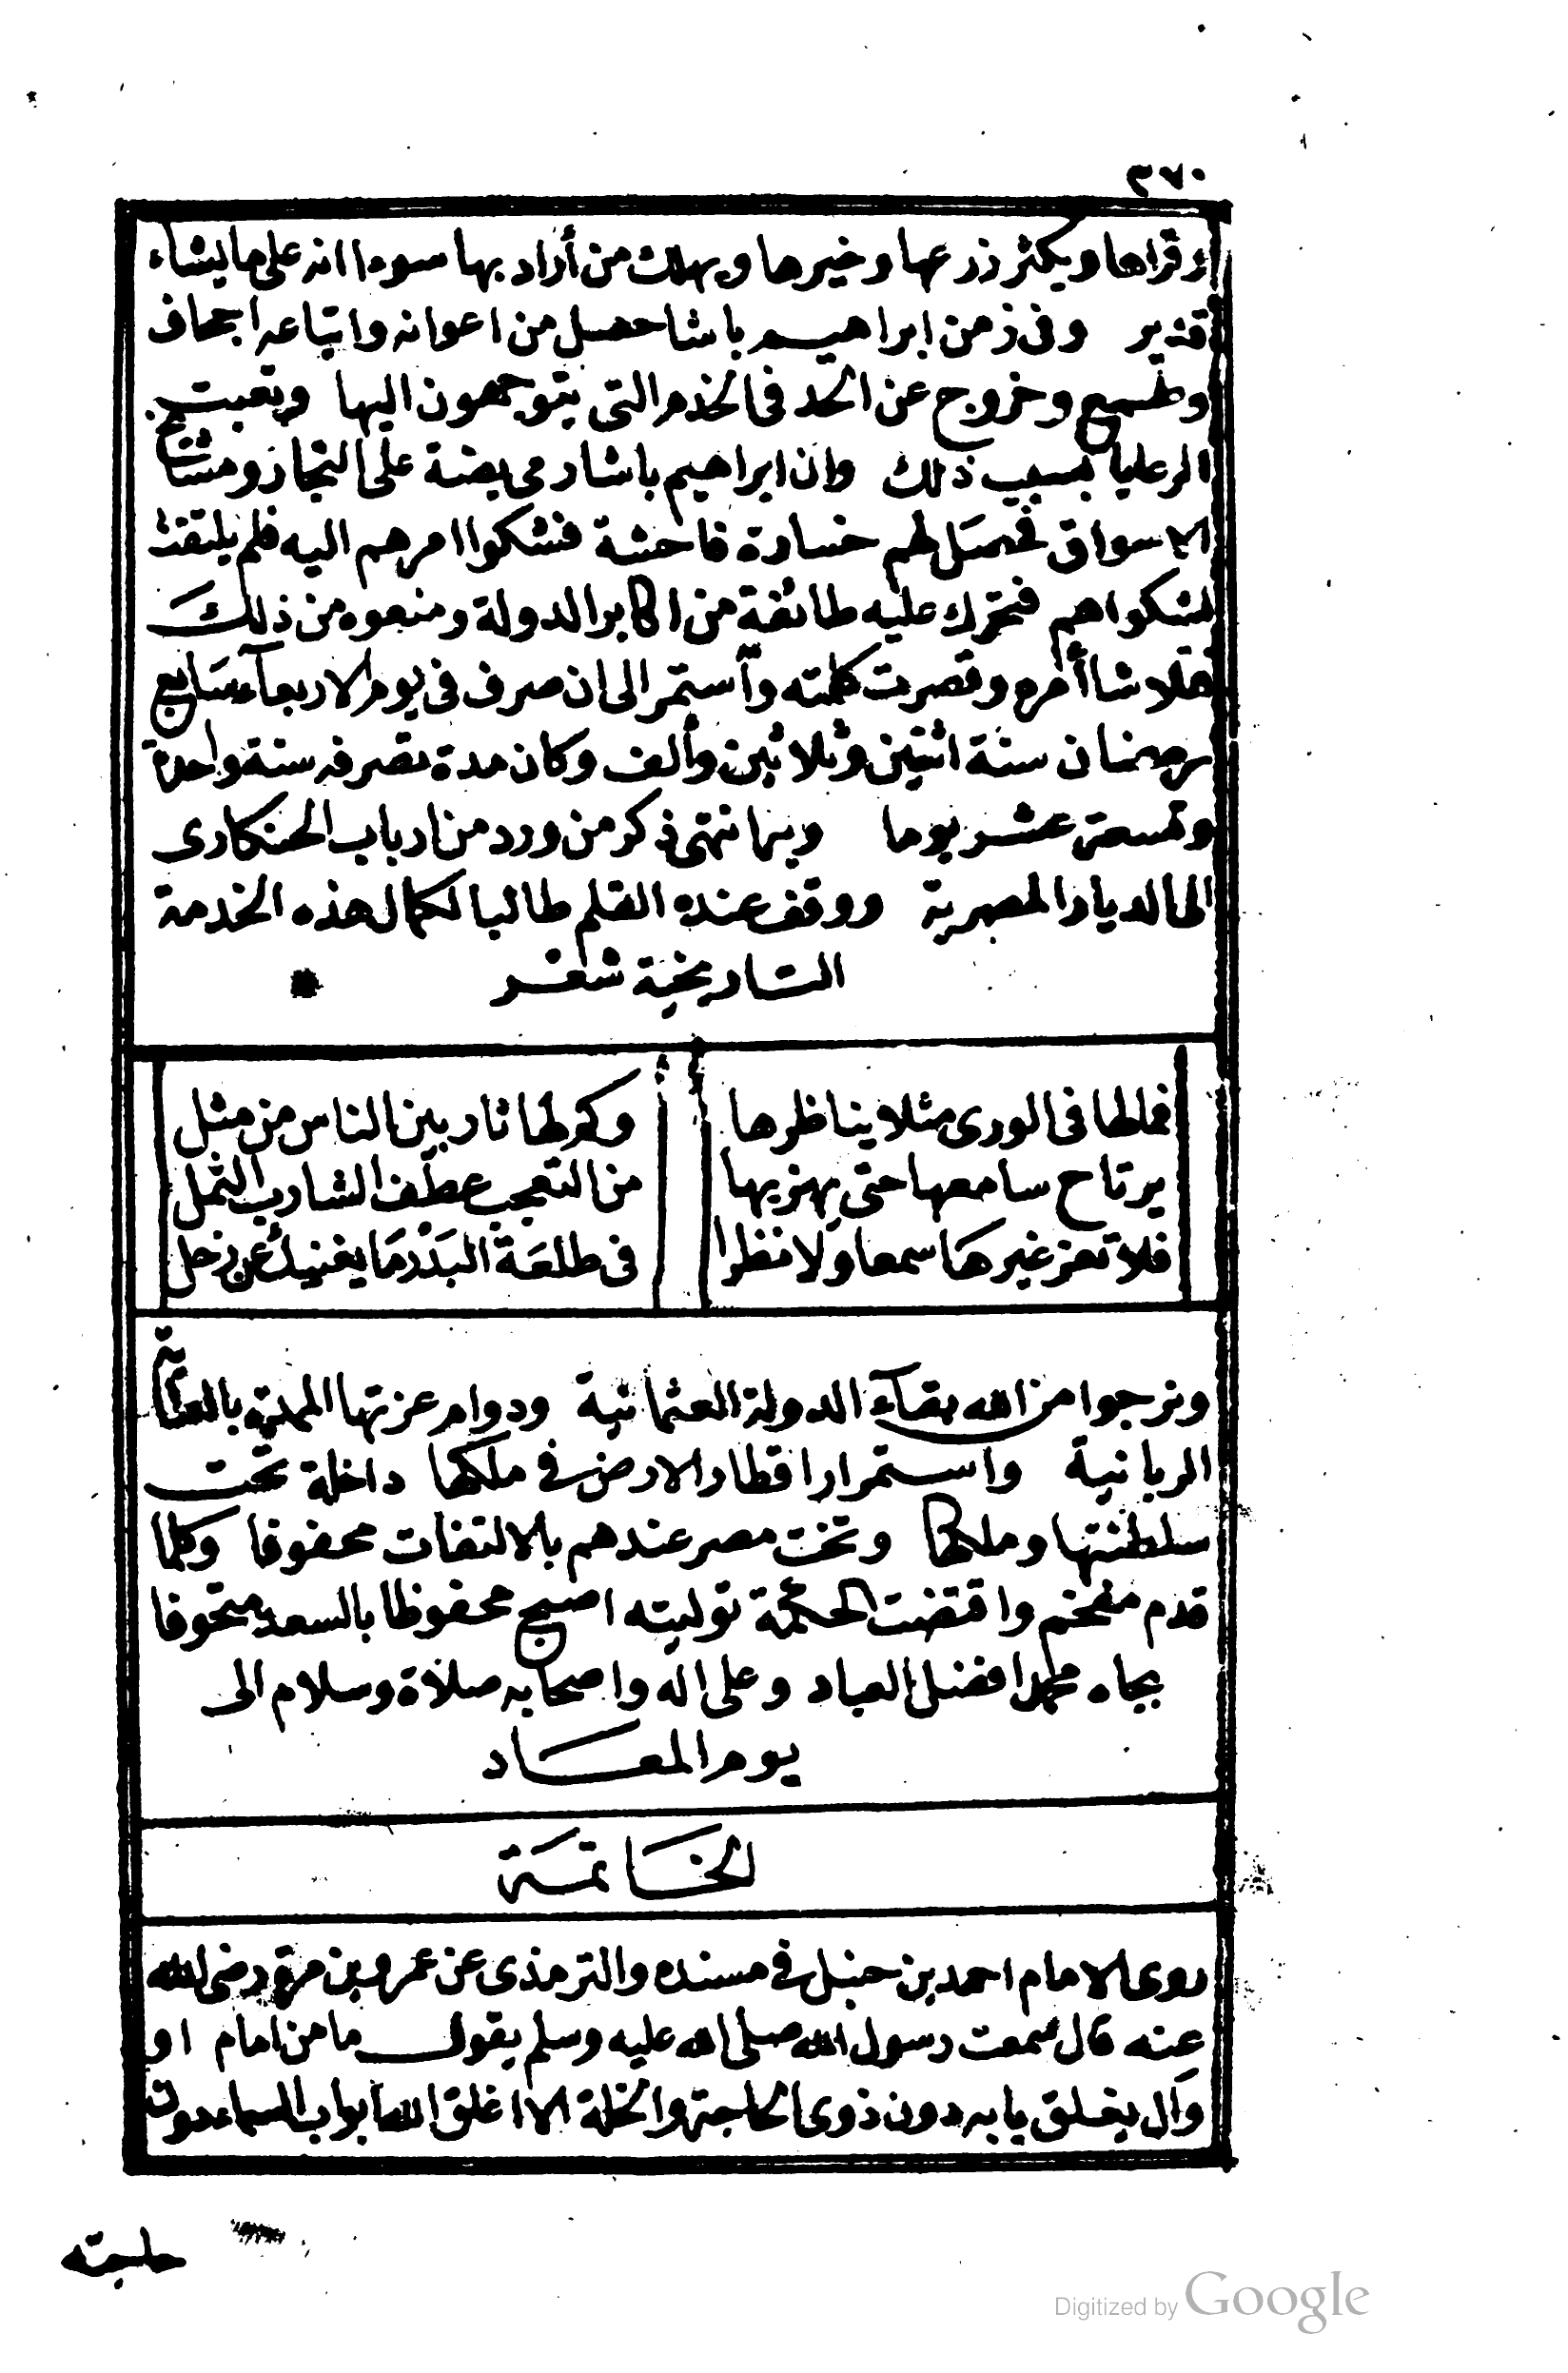 ٣٧٠
وقراها ويكثر زرعها وخيرها ويهلك من أراد بها سوءا انه على ما يشاء
قدير وفى زمن ابراهيم باشا حصل من اعوانه واتباعه اجحاف
وطمع وخروج عن الحد فى الخدم التى يتوجهون اليها وتعبت
الرعايا بسبب ذلك وان ابراهيم باشا رمى بضة على التجار ومشتا
الاسواق فحصل لهم خسارة فاحشة فشكوا امرهم اليه فلم يلتفت
لشكواهم فتحرك عليه طائفة من اكابر الدولة ومنعوه من ذلك
فتلاشا أمره وقصرت كلمته واستمر الى ان صرف فى يوم الاربعاء سابع
رمضان سنة اثنتين وثلاثين وألف وكان مدة تصرفه سنة واحدة
وتسعة عشر يوما وبها انتهى ذكر من ورد من ارباب الخنكارى
الى الديار المصرية ووقف عنده القلم طالبا لكمال هذه الخدمة
التاريخية شعر
فما لها فى الورى مثلا يناظرها وكم لها ثار بين الناس من مثل
يرتاح سامعها حتى يهز بها من التعجب عطف الشارب الثمل
فلا تعز غيرها سمعا ولا نظرا فى طلعة البدر ما يغنيك عن زحل
ونرجوا من الله بقاء الدولة العثمانية ودوام عزتها الممدة بالعناية
الربانية واستمرار اقطار الارض فى ملكها داخلة تحت
سلطنتها وملكها وتخت مصر عندهم بالالتفات محفوفا وكلما
قدم مفخم واقتضت الحكمة توليته اصبح محفوظا بالسعد متحوفا
بجاه محمد افضل العباد وعلى اله واصحابه صلاة وسلام الى
يوم المعاد
الخاتمة
روى الامام احمد بن حنبل فى مسنده والترمذى عن عمرو بن مرة رضى الله
عنه قال سمعت رسول الله صلى الله عليه وسلم يقول ما من امام او
وال يغلق بابه دون ذوى الحاجة والخلة الا اغلق الله ابواب السماء دون
حاجته
Digitized by Google